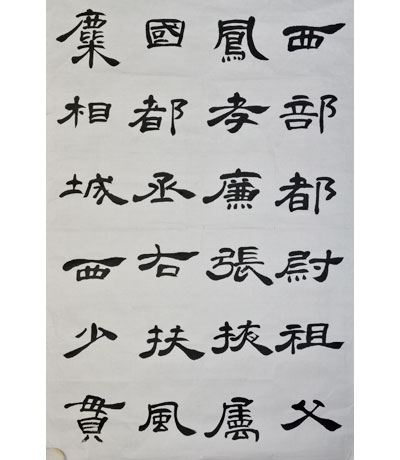 西部都尉祖父
鳳孝廉張掖屬
國都丞右扶風
麋相城西少貫